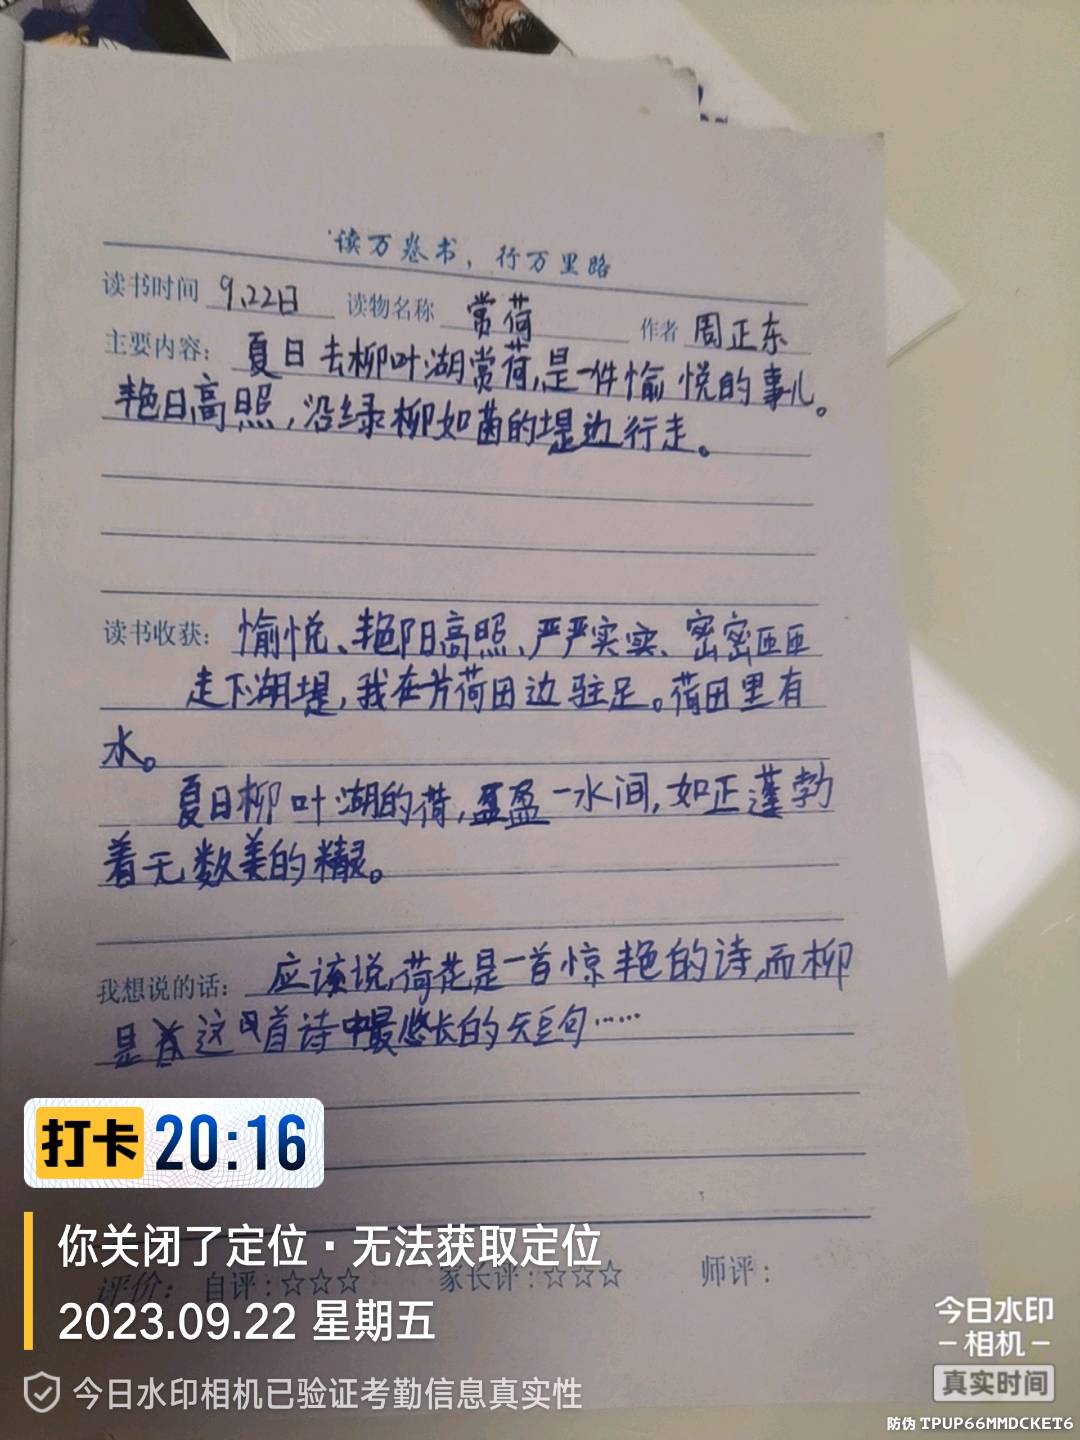 读万卷书，行万里路
读书时间 9.22日 读物名称 赏荷 作者 周正东
主要内容： 夏日去柳叶湖赏荷，是一件愉悦的事儿。
艳日高照，沿绿柳如茵的堤边行走。
读书收获： 愉悦、艳阳高照、严严实实、密密匝匝
走下湖堤，我在片荷田边驻足。荷田里有
水。
夏日柳叶湖的荷，盈盈一水间，如正蓬勃
着无数美的精灵。
我想说的话： 应该说，荷花是一首惊艳的诗，而柳
是 这 首诗中最悠长的短句……
打卡 20:16
你关闭了定位·无法获取定位
评价： 自评：☆☆☆ 家长评：☆☆☆ 师评：
2023.09.22 星期五
今日水印相机已验证考勤信息真实性
今日水印
-相机-
真实时间
防伪 TPUP66MMDCKET6